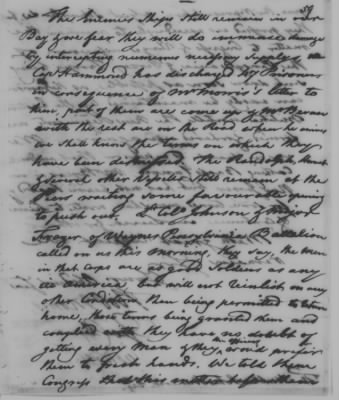 59
The Enemies Ships still remain in our
Bay & we fear they will do immense damage
by intercepting numerous necessary Supplys
Capt Hammond has discharged by Prisoners
in consequence of Mr Morris's letter to
him, part of them are come up & Mr
with the rest are on the Road, when he arrives
we shall know the terms on which they
have been discharged. The Randolph,
& several other Vessels still remain at the
Piers waiting some favourable opening
to push out. Lt Coll Johnson & Major
Frazer of Waynes Pensylvania Battalion
called on us this Morning, they say, the men
in that Corps are as good Soldiers as any
in America but will not reinlist on any
other Condition than being permitted to return
home, those terms being granted them and
complied with they have no doubt of
getting every Man & they would prefer
them to fresh hands. We told them
Congress